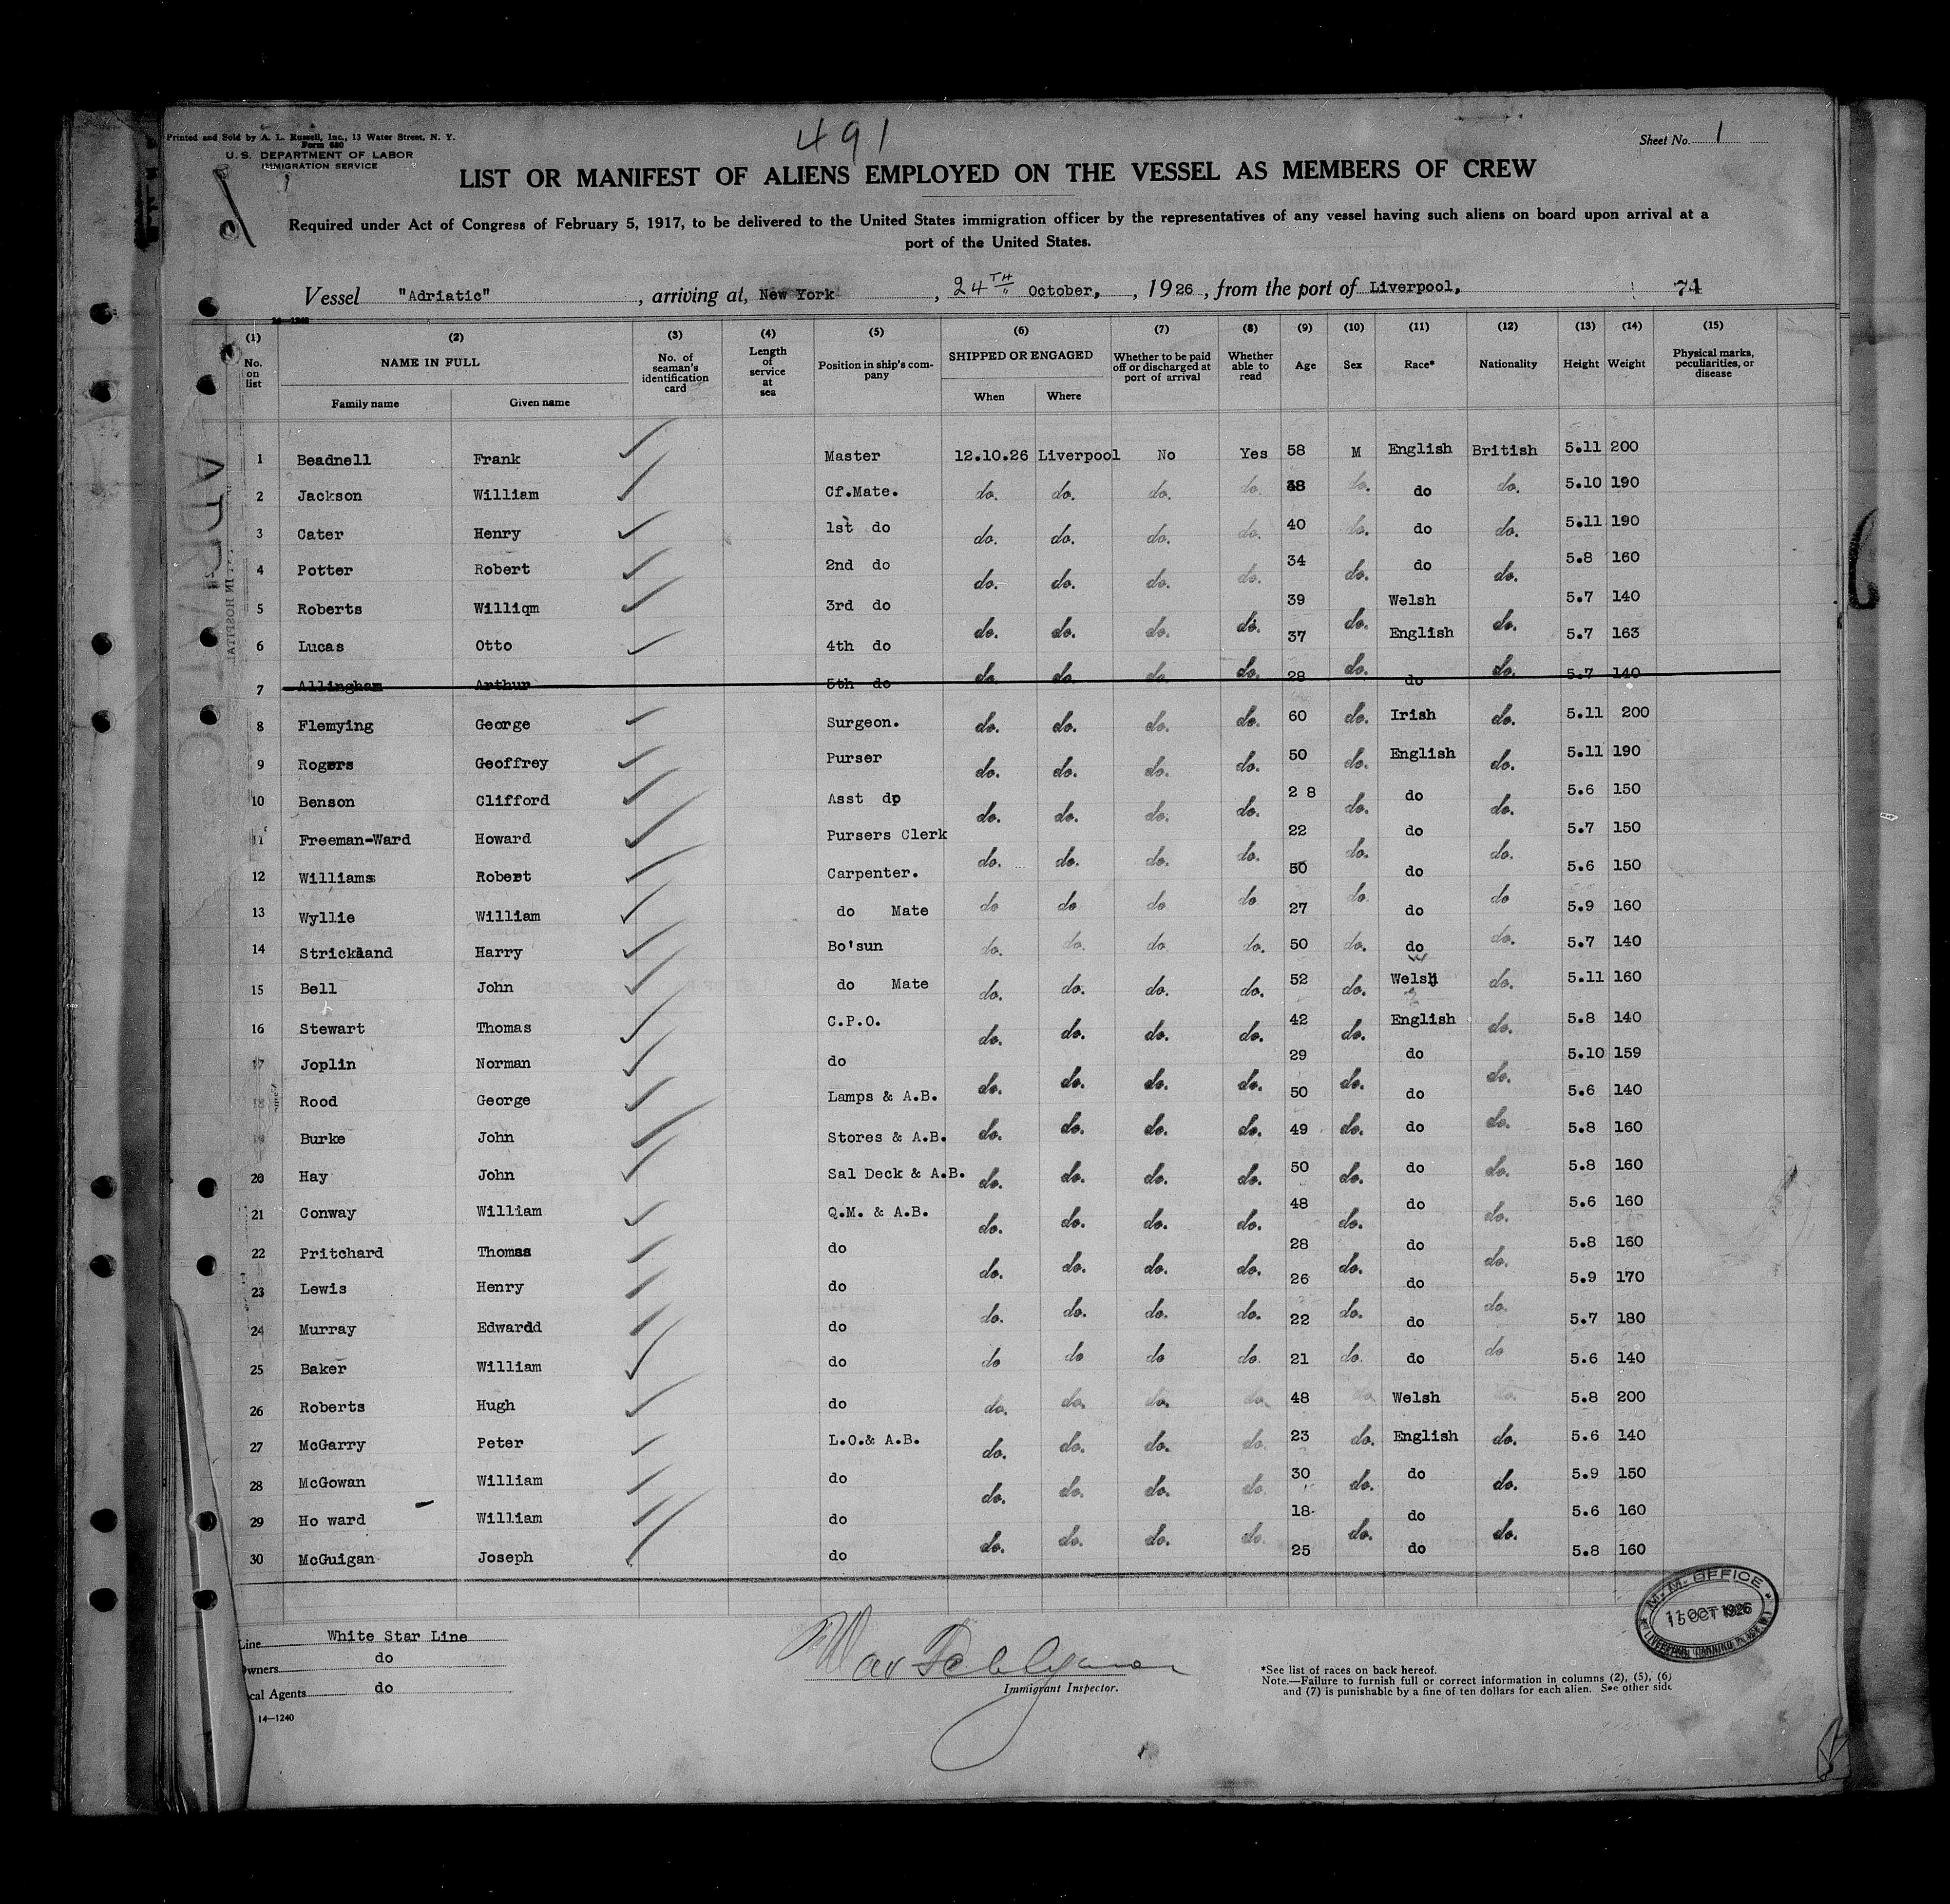 Printed and Sold by A. L. Russell, Inc., 13 Water Street, N. Y.
Form 680
U. S. DEPARTMENT OF LABOR
IMMIGRATION SERVICE
491
Sheet No. 1
LIST OR MANIFEST OF ALIENS EMPLOYED ON THE VESSEL AS MEMBERS OF CREW
Required under Act of Congress of February 5, 1917, to be delivered to the United States immigration officer by the representatives of any vessel having such aliens on board upon arrival at a
port of the United States.
Vessel "Adriatic", arriving at, New York, 24TH October, 1926, from the port of Liverpool, 71
14—1240
(1) (2) (3) (4) (5) (6) (7) (8) (9) (10) (11) (12) (13) (14) (15)
No. on list NAME IN FULL Family name Given name No. of seaman's identification card Length of service at sea Position in ship's company SHIPPED OR ENGAGED When Where Whether to be paid off or discharged at port of arrival Whether able to read Age Sex Race* Nationality Height Weight Physical marks, peculiarities, or disease
1 Beadnell Frank Master 12.10.26 Liverpool No Yes 58 M English British 5.11 200
2 Jackson William Cf.Mate. do. do. do. do. 48 do. do do. 5.10 190
3 Cater Henry 1st do do. do. do. do. 40 do. do do. 5.11 190
4 Potter Robert 2nd do do. do. do. do. 34 do. do do. 5.8 160
5 Roberts Williqm 3rd do do. do. do. do. 39 do. Welsh do. 5.7 140
6 Lucas Otto 4th do do. do. do. do. 37 do. English do. 5.7 163
7 Allingham Arthur 5th do 28 do 5.7 140
8 Flemying George Surgeon. do. do. do. do. 60 do. Irish do. 5.11 200
9 Rogers Geoffrey Purser do. do. do. do. 50 do. English do. 5.11 190
10 Benson Clifford Asst do do. do. do. do. 2 8 do. do do. 5.6 150
11 Freeman-Ward Howard Pursers Clerk do. do. do. do. 22 do. do do. 5.7 150
12 Williams Robert Carpenter. do do do do. 50 do. do do 5.6 150
13 Wyllie William do Mate 27 do 5.9 160
14 Strickland Harry Bo'sun do. do. do. do. 50 do. do do. 5.7 140
15 Bell John do Mate do. do. do. do. 52 do. Welsh do. 5.11 160
16 Stewart Thomas C.P.O. do. do. do. do. 42 do. English do. 5.8 140
17 Joplin Norman do do. do. do. do. 29 do. do do. 5.10 159
18 Rood George Lamps & A.B. 50 do 5.6 140
19 Burke John Stores & A.B. do. do. do. do. 49 do. do do. 5.8 160
20 Hay John Sal Deck & A.B. do. do. do. do. 50 do. do do. 5.8 160
21 Conway William Q.M. & A.B. do. do. do. do. 48 do. do do. 5.6 160
22 Pritchard Thomas do do. do. do. do. 28 do. do do. 5.8 160
23 Lewis Henry do do. do. do. do. 26 do. do do. 5.9 170
24 Murray Edwardd do 22 do 5.7 180
25 Baker William do do do do do. 21 do. do do 5.6 140
26 Roberts Hugh do do. do. do. do. 48 do. Welsh do. 5.8 200
27 McGarry Peter L.O.& A.B. do. do. do. do. 23 do. English do. 5.6 140
28 McGowan William do do. do. do. do. 30 do. do do. 5.9 150
29 Ho ward William do do. do. do. do. 18 do. do do. 5.6 160
30 McGuigan Joseph do 25 do 5.8 160
Line White Star Line
Owners do
Local Agents do
14—1240
Immigrant Inspector.
*See list of races on back hereof.
Note.—Failure to furnish full or correct information in columns (2), (5), (6)
and (7) is punishable by a fine of ten dollars for each alien. See other side
M. M. OFFICE
OCT 1926
LIVERPOOL
ADRIATIC